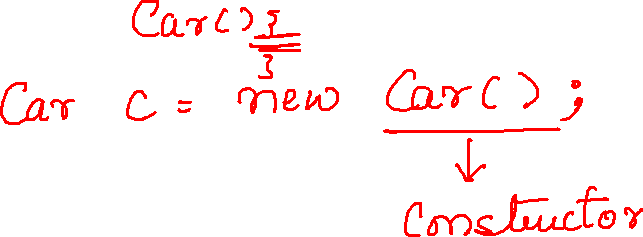 Car(){
}
Car c = new Car();
↓
Constructor